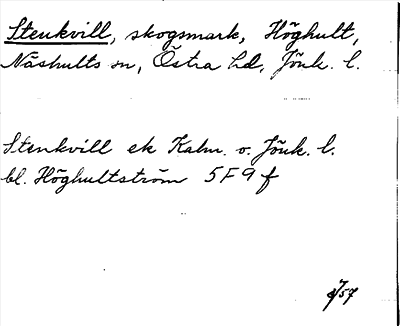 Stenkvill, skogsmark, Höghult,
Näshults sn, Östra hd, Jönk. l.
Stenkvill ek Kalm. o. Jönk. l.
bl. Höghultström 5F9f